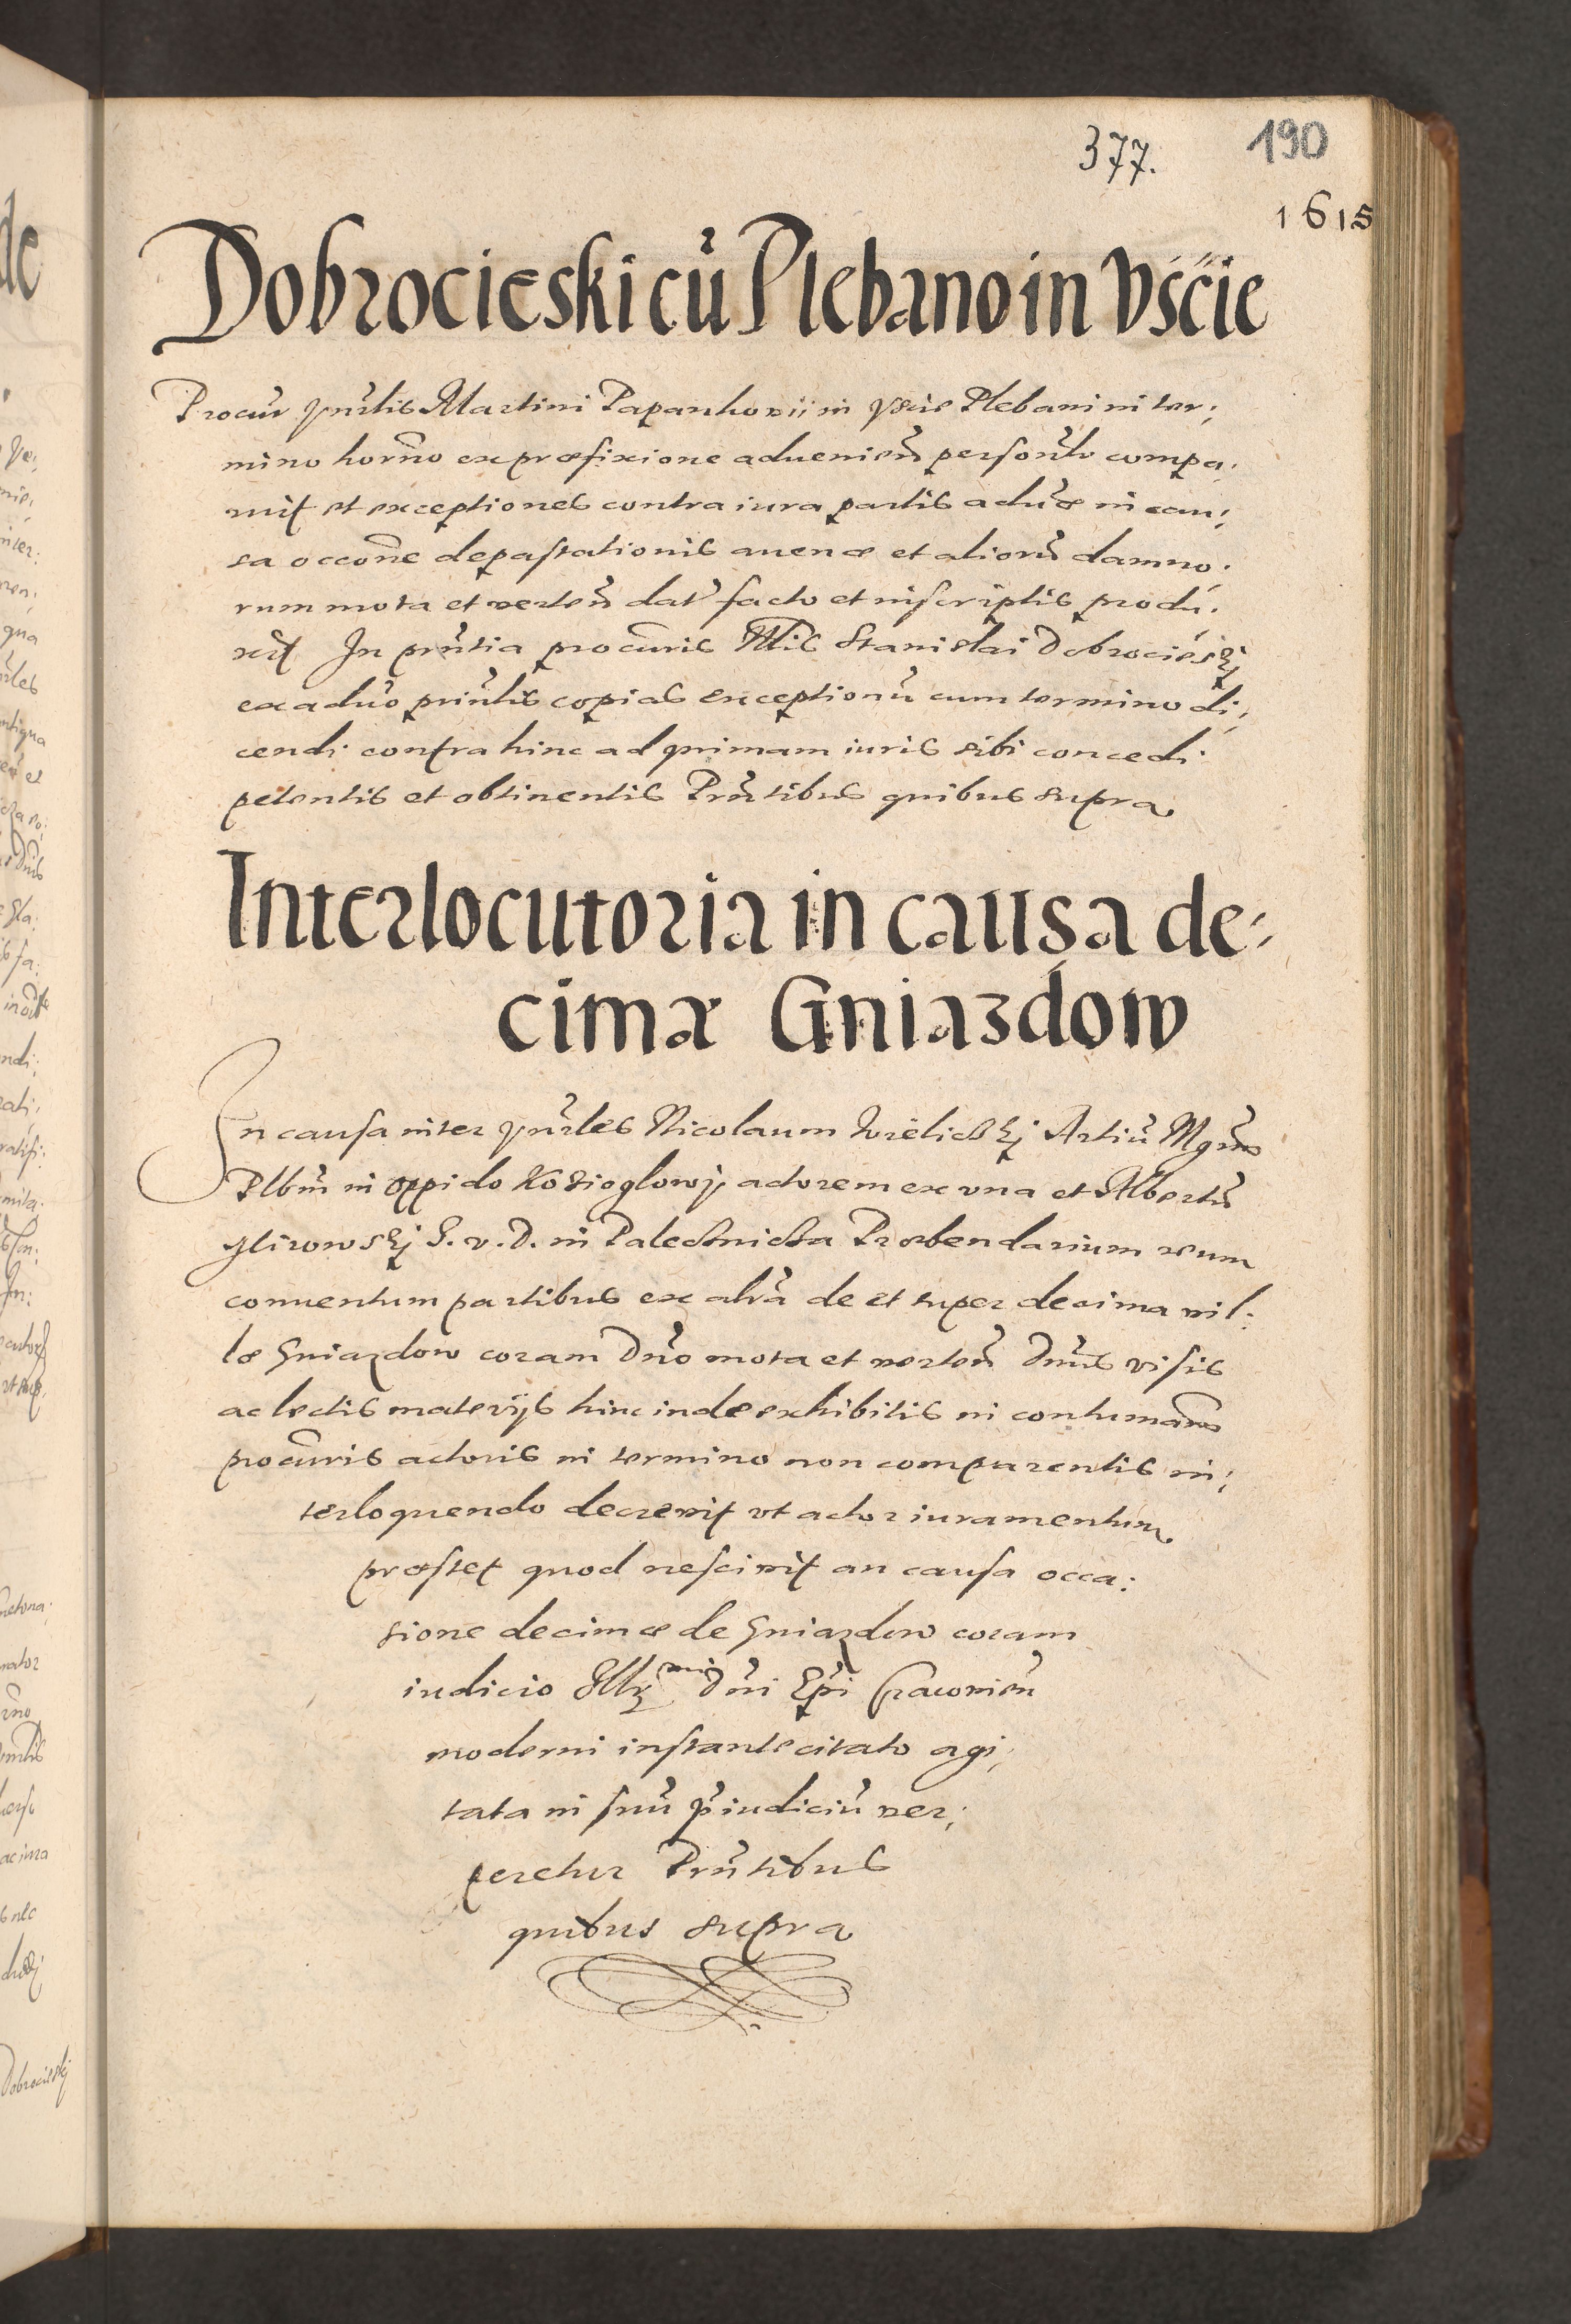 377. 190
1615
Dobrocieski cũ Plebano in Vscie
Procur Vnrlis Martini Papankowii in Vscie Plebani in ter;
mino horno ex præfixione advenien personlr compa;
ruit et exceptiones contra iura partis adversæ in cau;
sa occone depastationis avenæ et aliorũ damno;
rum mota et verten dat facto et in scriptis produ;
xit In pñtia procuris Nlis Stanislai Dobrociesky
ex adũo prinlis copias exceptionũ cum termino di;
cendi contra hinc ad primam iuris sibi concedi
petentis et obtinentis Pñtibus quibus supra
Interlocutoria in causa de;
cimæ Gniazdow
In causa inter Vnrles Nicolaum Artiũ Mgrum
Plbm in oppido Kozieglowy actorem ex una et Albertũ
S. v. D. in Præbendarium reum
conventum partibus ex altra de et super decima vil;
læ Gniazdow coram Dno mota et verten Dnus visis
ac lectis materijs hinc inde exhibitis in contumam
procuris actoris in termino non comparentis in;
terloquendo decrevit vt actor iuramentum
præstet quod nescivit an causa occa;
sione decimæ de Gniazdow coram
iudicio Illrmi Dni Epi Cracovien
moderni instante citato agi;
tata in suũ piudiciũ ver;
teretur Pñtibus
quibus supra